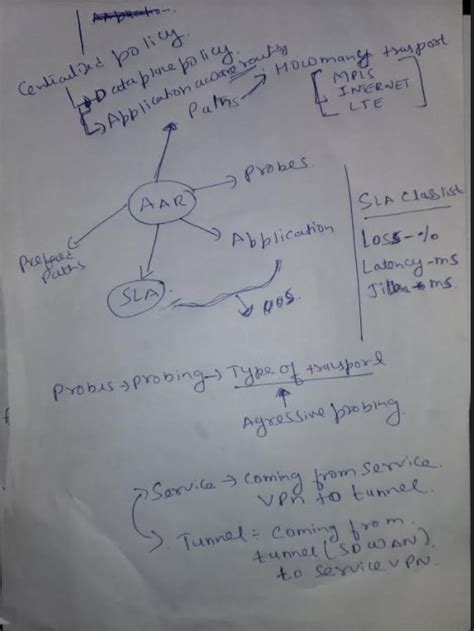 Centralized policy.
Data plane policy.
Application aware routing
Paths → How many trasport
MPLS
INTERNET
LTE
AAR
→ Probes
→ Application
Prefered
Paths
SLA
SLA Class list
Loss - %
Latency - ms
QOS.
Probes → Probing → Type of trasport
Agressive probing.
Service → coming from service
VPN to tunnel.
Tunnel = coming from
tunnel (SDWAN)
to service VPN.